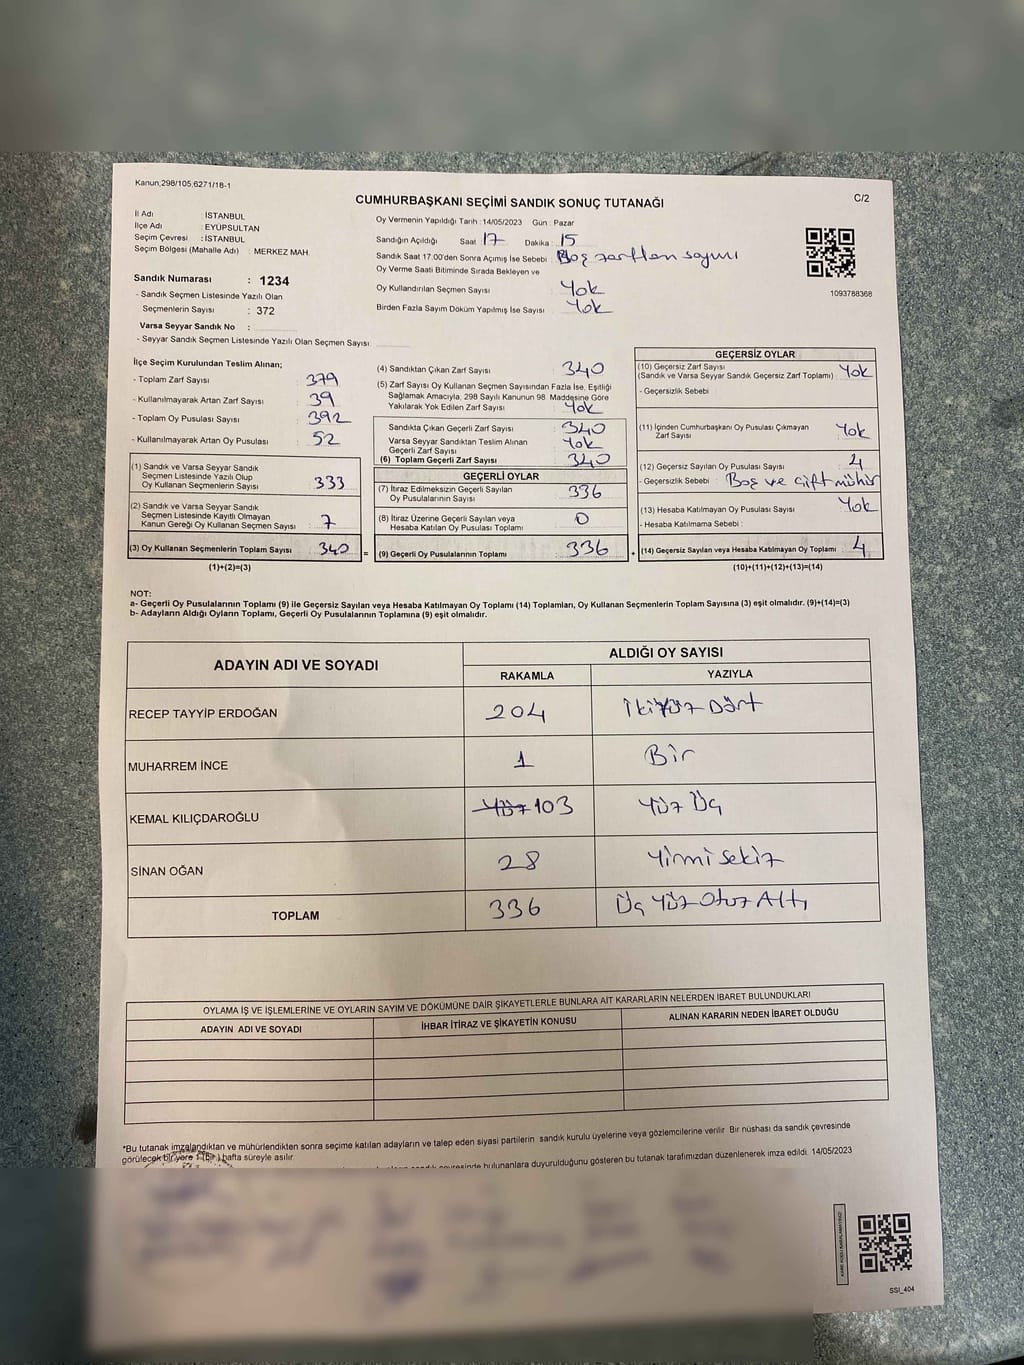 Kanun,298/105,6271/18-1
CUMHURBAŞKANI SEÇİMİ SANDIK SONUÇ TUTANAĞI
C/2
İl Adı : İSTANBUL
İlçe Adı : EYÜPSULTAN
Seçim Çevresi : İSTANBUL
Seçim Bölgesi (Mahalle Adı) : MERKEZ MAH.
Sandık Numarası : 1234
- Sandık Seçmen Listesinde Yazılı Olan
Seçmenlerin Sayısı : 372
Varsa Seyyar Sandık No :
- Seyyar Sandık Seçmen Listesinde Yazılı Olan Seçmen Sayısı:
Oy Vermenin Yapıldığı Tarih : 14/05/2023 Gün : Pazar
Sandığın Açıldığı Saat 17 Dakika : 15
Sandık Saat 17.00'den Sonra Açımış İse Sebebi : Boş zarfların sayımı
Oy Verme Saati Bitiminde Sırada Bekleyen ve
Oy Kullandırılan Seçmen Sayısı : Yok
Birden Fazla Sayım Döküm Yapılmış İse Sayısı : Yok
1093788368
İlçe Seçim Kurulundan Teslim Alınan;
- Toplam Zarf Sayısı : 379
- Kullanılmayarak Artan Zarf Sayısı : 39
- Toplam Oy Pusulası Sayısı : 392
- Kullanılmayarak Artan Oy Pusulası : 52
(1) Sandık ve Varsa Seyyar Sandık
Seçmen Listesinde Yazılı Olup
Oy Kullanan Seçmenlerin Sayısı : 333
(2) Sandık ve Varsa Seyyar Sandık
Seçmen Listesinde Kayıtlı Olmayan
Kanun Gereği Oy Kullanan Seçmen Sayısı : 7
(3) Oy Kullanan Seçmenlerin Toplam Sayısı : 340 =
(1)+(2)=(3)
(4) Sandıktan Çıkan Zarf Sayısı : 340
(5) Zarf Sayısı Oy Kullanan Seçmen Sayısından Fazla İse, Eşitliği
Sağlamak Amacıyla, 298 Sayılı Kanunun 98. Maddesine Göre
Yakılarak Yok Edilen Zarf Sayısı : Yok
Sandıkta Çıkan Geçerli Zarf Sayısı : 340
Varsa Seyyar Sandıktan Teslim Alınan
Geçerli Zarf Sayısı : Yok
(6) Toplam Geçerli Zarf Sayısı : 340
GEÇERLİ OYLAR
(7) İtiraz Edilmeksizin Geçerli Sayılan
Oy Pusulalarının Sayısı : 336
(8) İtiraz Üzerine Geçerli Sayılan veya
Hesaba Katılan Oy Pusulası Toplamı : 0
(9) Geçerli Oy Pusulalarının Toplamı : 336 +
GEÇERSİZ OYLAR
(10) Geçersiz Zarf Sayısı
(Sandık ve Varsa Seyyar Sandık Geçersiz Zarf Toplamı) : Yok
- Geçersizlik Sebebi :
(11) İçinden Cumhurbaşkanı Oy Pusulası Çıkmayan
Zarf Sayısı : Yok
(12) Geçersiz Sayılan Oy Pusulası Sayısı : 4
- Geçersizlik Sebebi : Boş ve çift mühür
(13) Hesaba Katılmayan Oy Pusulası Sayısı : Yok
- Hesaba Katılmama Sebebi :
(14) Geçersiz Sayılan veya Hesaba Katılmayan Oy Toplamı : 4
(10)+(11)+(12)+(13)=(14)
NOT:
a- Geçerli Oy Pusulalarının Toplamı (9) ile Geçersiz Sayılan veya Hesaba Katılmayan Oy Toplamı (14) Toplamları, Oy Kullanan Seçmenlerin Toplam Sayısına (3) eşit olmalıdır. (9)+(14)=(3)
b- Adayların Aldığı Oyların Toplamı, Geçerli Oy Pusulalarının Toplamına (9) eşit olmalıdır.
ADAYIN ADI VE SOYADI
ALDIĞI OY SAYISI
RAKAMLA YAZIYLA
RECEP TAYYİP ERDOĞAN 204 İkiYüz Dört
MUHARREM İNCE 1 Bir
KEMAL KILIÇDAROĞLU Yüz 103 Yüz Üç
SİNAN OĞAN 28 Yirmi Sekiz
TOPLAM 336 Üç Yüz Otuz Altı
OYLAMA İŞ VE İŞLEMLERİNE VE OYLARIN SAYIM VE DÖKÜMÜNE DAİR ŞİKAYETLERLE BUNLARA AİT KARARLARIN NELERDEN İBARET BULUNDUKLARI
ADAYIN ADI VE SOYADI İHBAR İTİRAZ VE ŞİKAYETİN KONUSU ALINAN KARARIN NEDEN İBARET OLDUĞU
*Bu tutanak imzalandıktan ve mühürlendikten sonra seçime katılan adayların ve talep eden siyasi partilerin sandık kurulu üyelerine veya gözlemcilerine verilir. Bir nüshası da sandık çevresinde
görülecek bir yere 1 (bir) hafta süreyle asılır.
bulunanlara duyurulduğunu gösteren bu tutanak tarafımızdan düzenlenerek imza edildi. 14/05/2023
SSİ_404